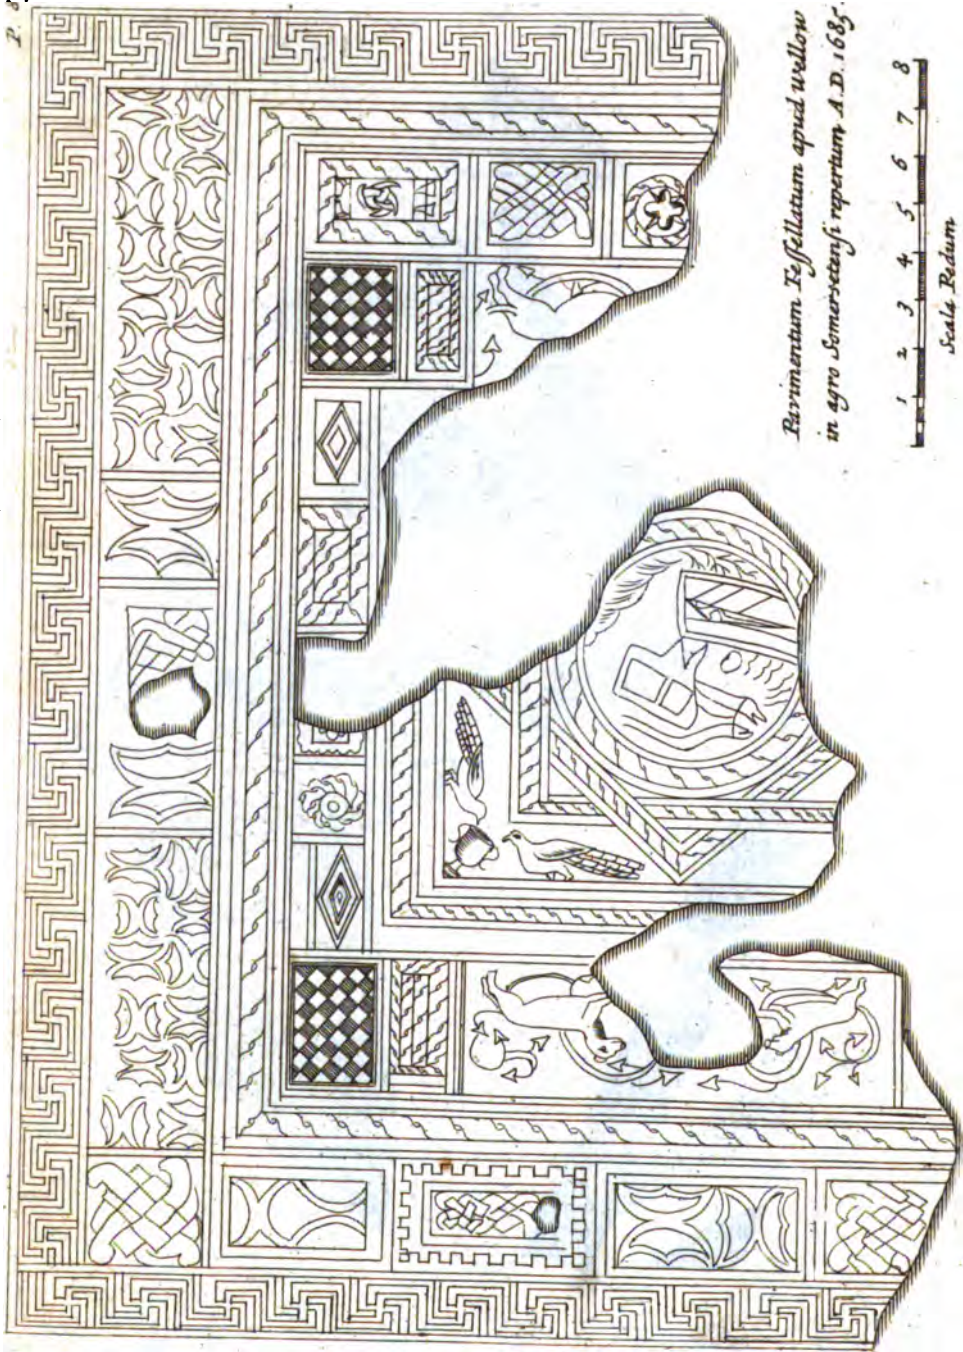 P. 8
Pavimentum Teſſellatum apud wellow
in agro Somersetensi repertum A.D. 1685.
1 2 3 4 5 6 7 8
Scala Pedum